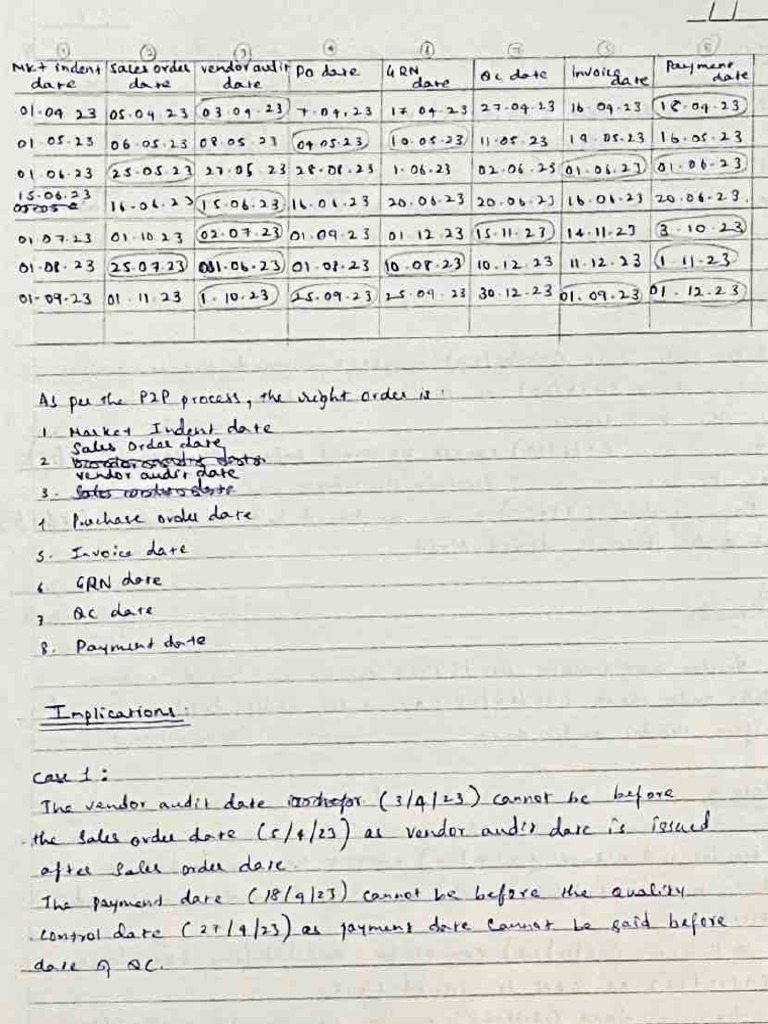 ① ② ③ ④ ⑥ ⑦ ⑤ ⑧
Mkt indent date | Sales order date | vendor audit date | PO date | GRN date | QC date | Invoice date | Payment date
01.04 23 | 05.04 23 | 03 04.23 | 7.04.23 | 17 04.23 | 27.04.23 | 16.04.23 | 18.04.23
01.05.23 | 06.05.23 | 08.05.23 | 04 05.23 | 10.05.23 | 11.05.23 | 19.05.23 | 16.05.23
01.06.23 | 25.05.23 | 27.05.23 | 28.08.23 | 1.06.23 | 02.06.23 | 01.06.23 | 01.06.23
15.06.23 | 16.06.23 | 15.06.23 | 16.06.23 | 20.06.23 | 20.06.23 | 16.06.23 | 20.06.23.
01.07.23 | 01.10 23 | 02.07.23 | 01.09.23 | 01.12.23 | 15.11.23 | 14.11.23 | 3.10.23
01.08.23 | 25.07.23 | 01.06.23 | 01.08.23 | 10.08.23 | 10.12.23 | 11.12.23 | 1.11.23
01-09.23 | 01.11.23 | 1.10.23 | 25.09.23 | 25.09.23 | 30.12.23 | 01.09.23 | 01.12.23
As per the P2P process, the right order is:
1. Market Indent date
Sales Order date
2.
vendor audit date
3. Sales order date
4 Purchase order date
5. Invoice date
6 GRN date
7 QC date
8. Payment date
Implications:
Case 1:
The vendor audit date (3/4/23) cannot be before
the Sales order date (5/4/23) as vendor audit date is issued
after Sales order date.
The payment date (18/4/23) cannot be before the quality
control date (27/4/23) as payment date cannot be paid before
date of QC.